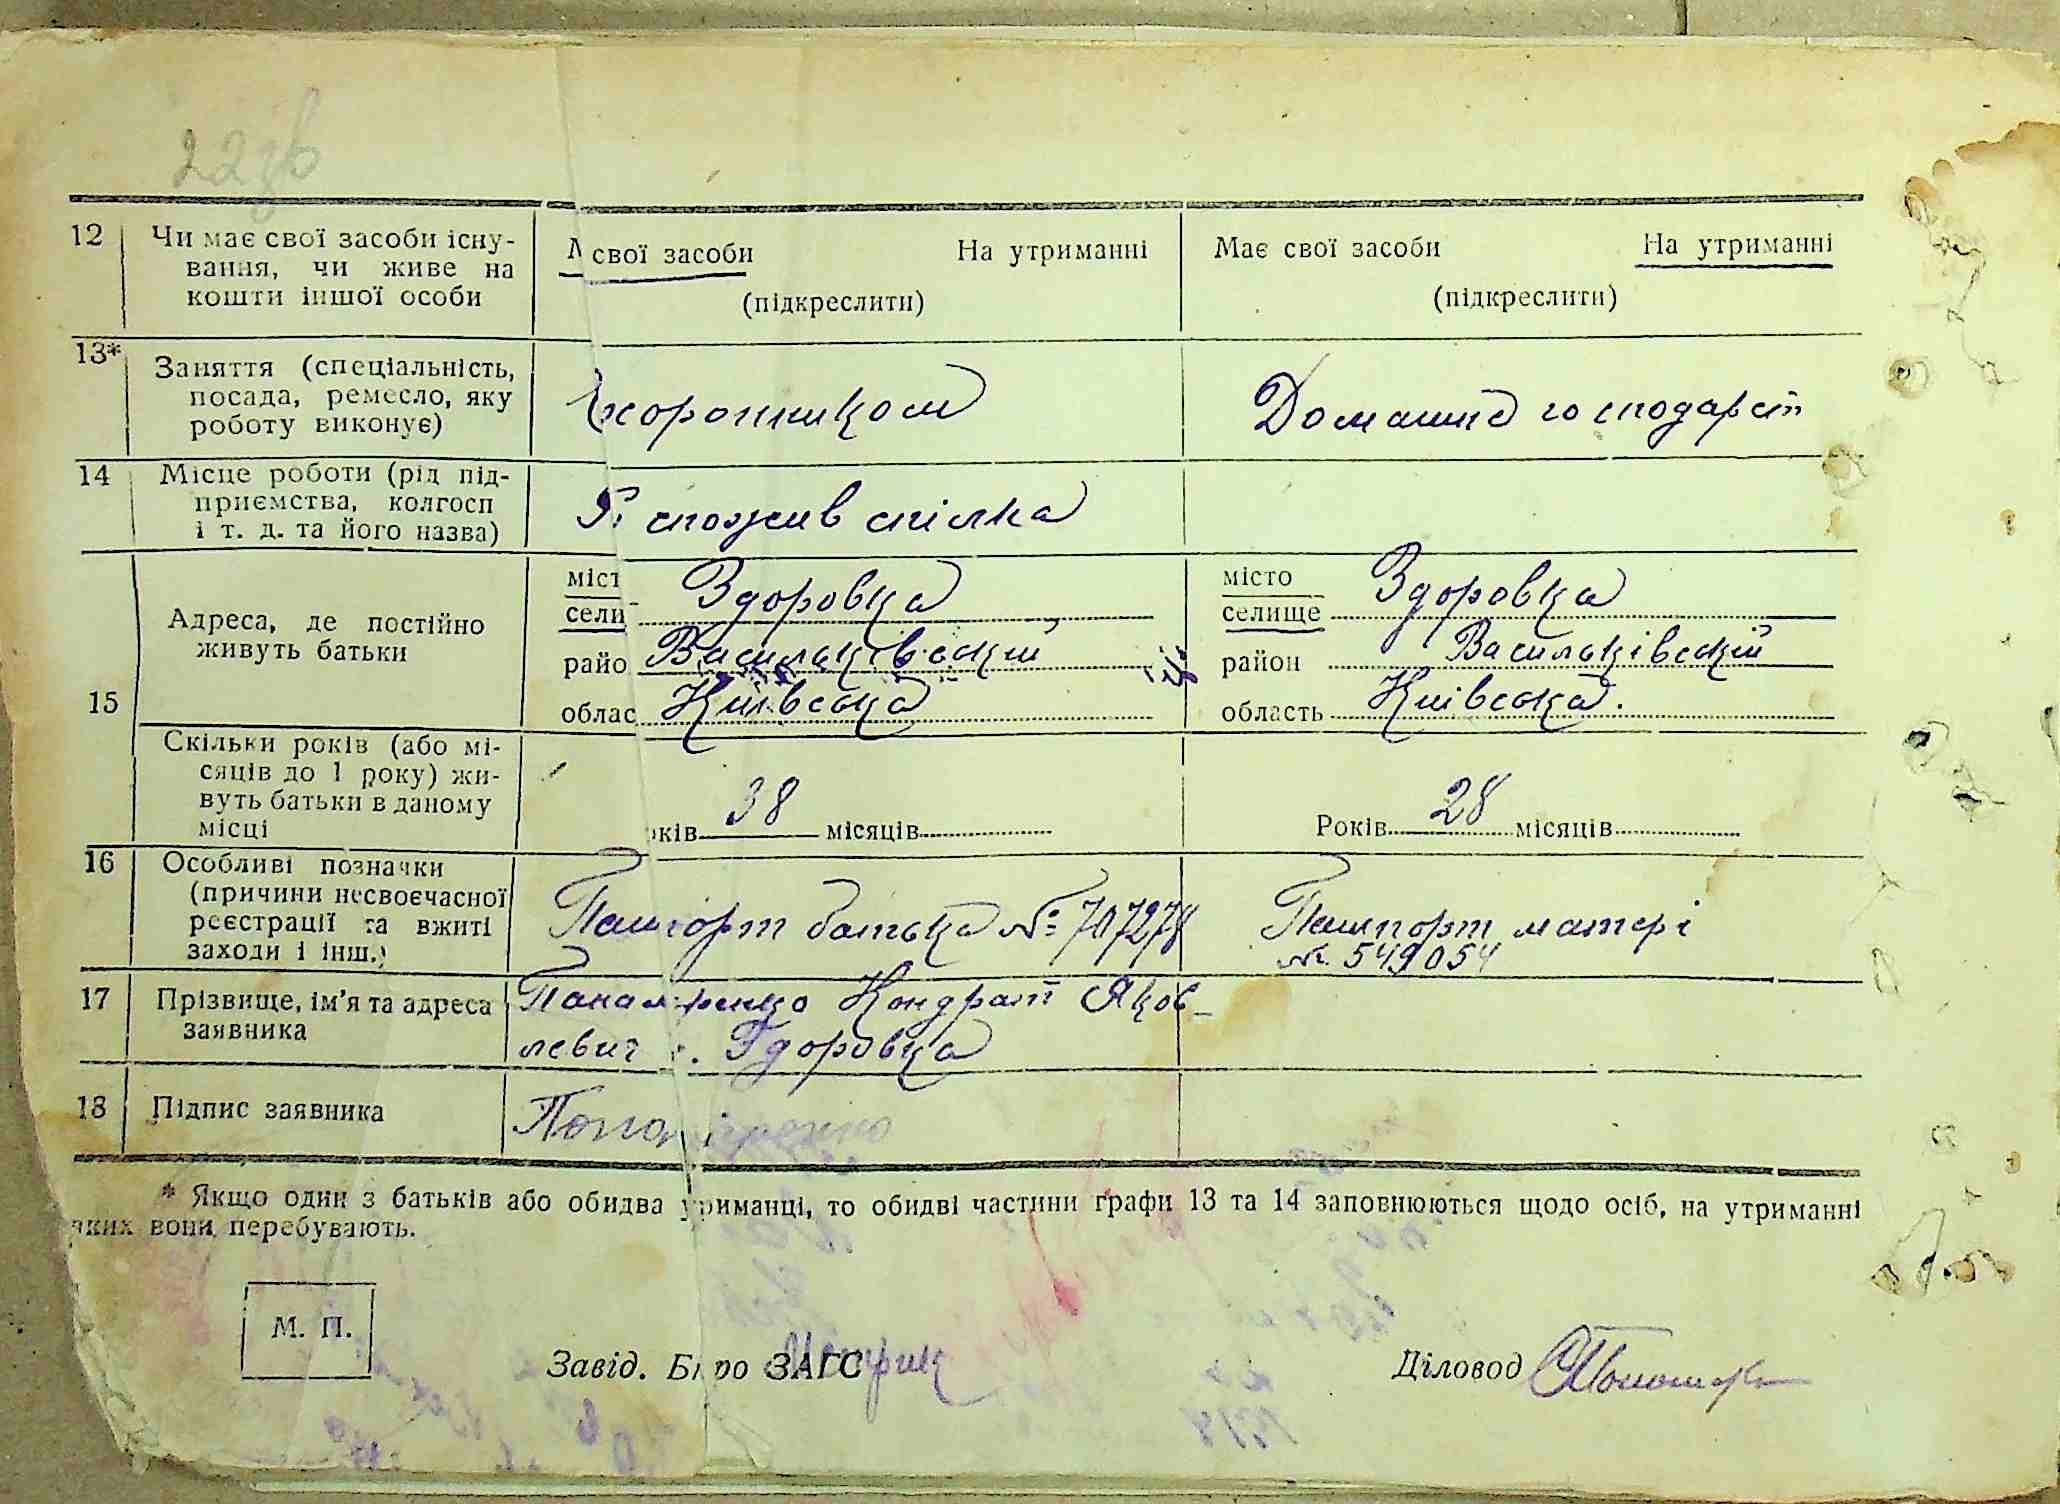 22зв
12 Чи має свої засоби існу-
вання, чи живе на
кошти іншої особи
свої засоби На утриманні Має свої засоби На утриманні
(підкреслити) (підкреслити)
13* Заняття (спеціальність,
посада, ремесло, яку
роботу виконує)
Охоронником Домашнє господарст
14 Місце роботи (рід під-
приємства, колгосп
і т. д. та його назва)
спожив спілка
15 Адреса, де постійно
живуть батьки
міст
сели Здоровка
райо Васильківський
облас Київська
місто
селище Здоровка
район Васильківський
область Київська.
Скільки років (або мі-
сяців до 1 року) жи-
вуть батьки в даному
місці
ків 38 місяців
Років 28 місяців
16 Особливі позначки
(причини несвоєчасної
реєстрації та вжиті
заходи і інш.)
Пашпорт батька № 707278
Пашпорт матері
№ 549054
17 Прізвище, ім'я та адреса
заявника
Панамаренко Кондрат Яков-
левич с. Здоровка
18 Підпис заявника
* Якщо один з батьків або обидва утриманці, то обидві частини графи 13 та 14 заповнюються щодо осіб, на утриманні
яких вони перебувають.
М. П.
Завід. Бюро ЗАГС Діловод